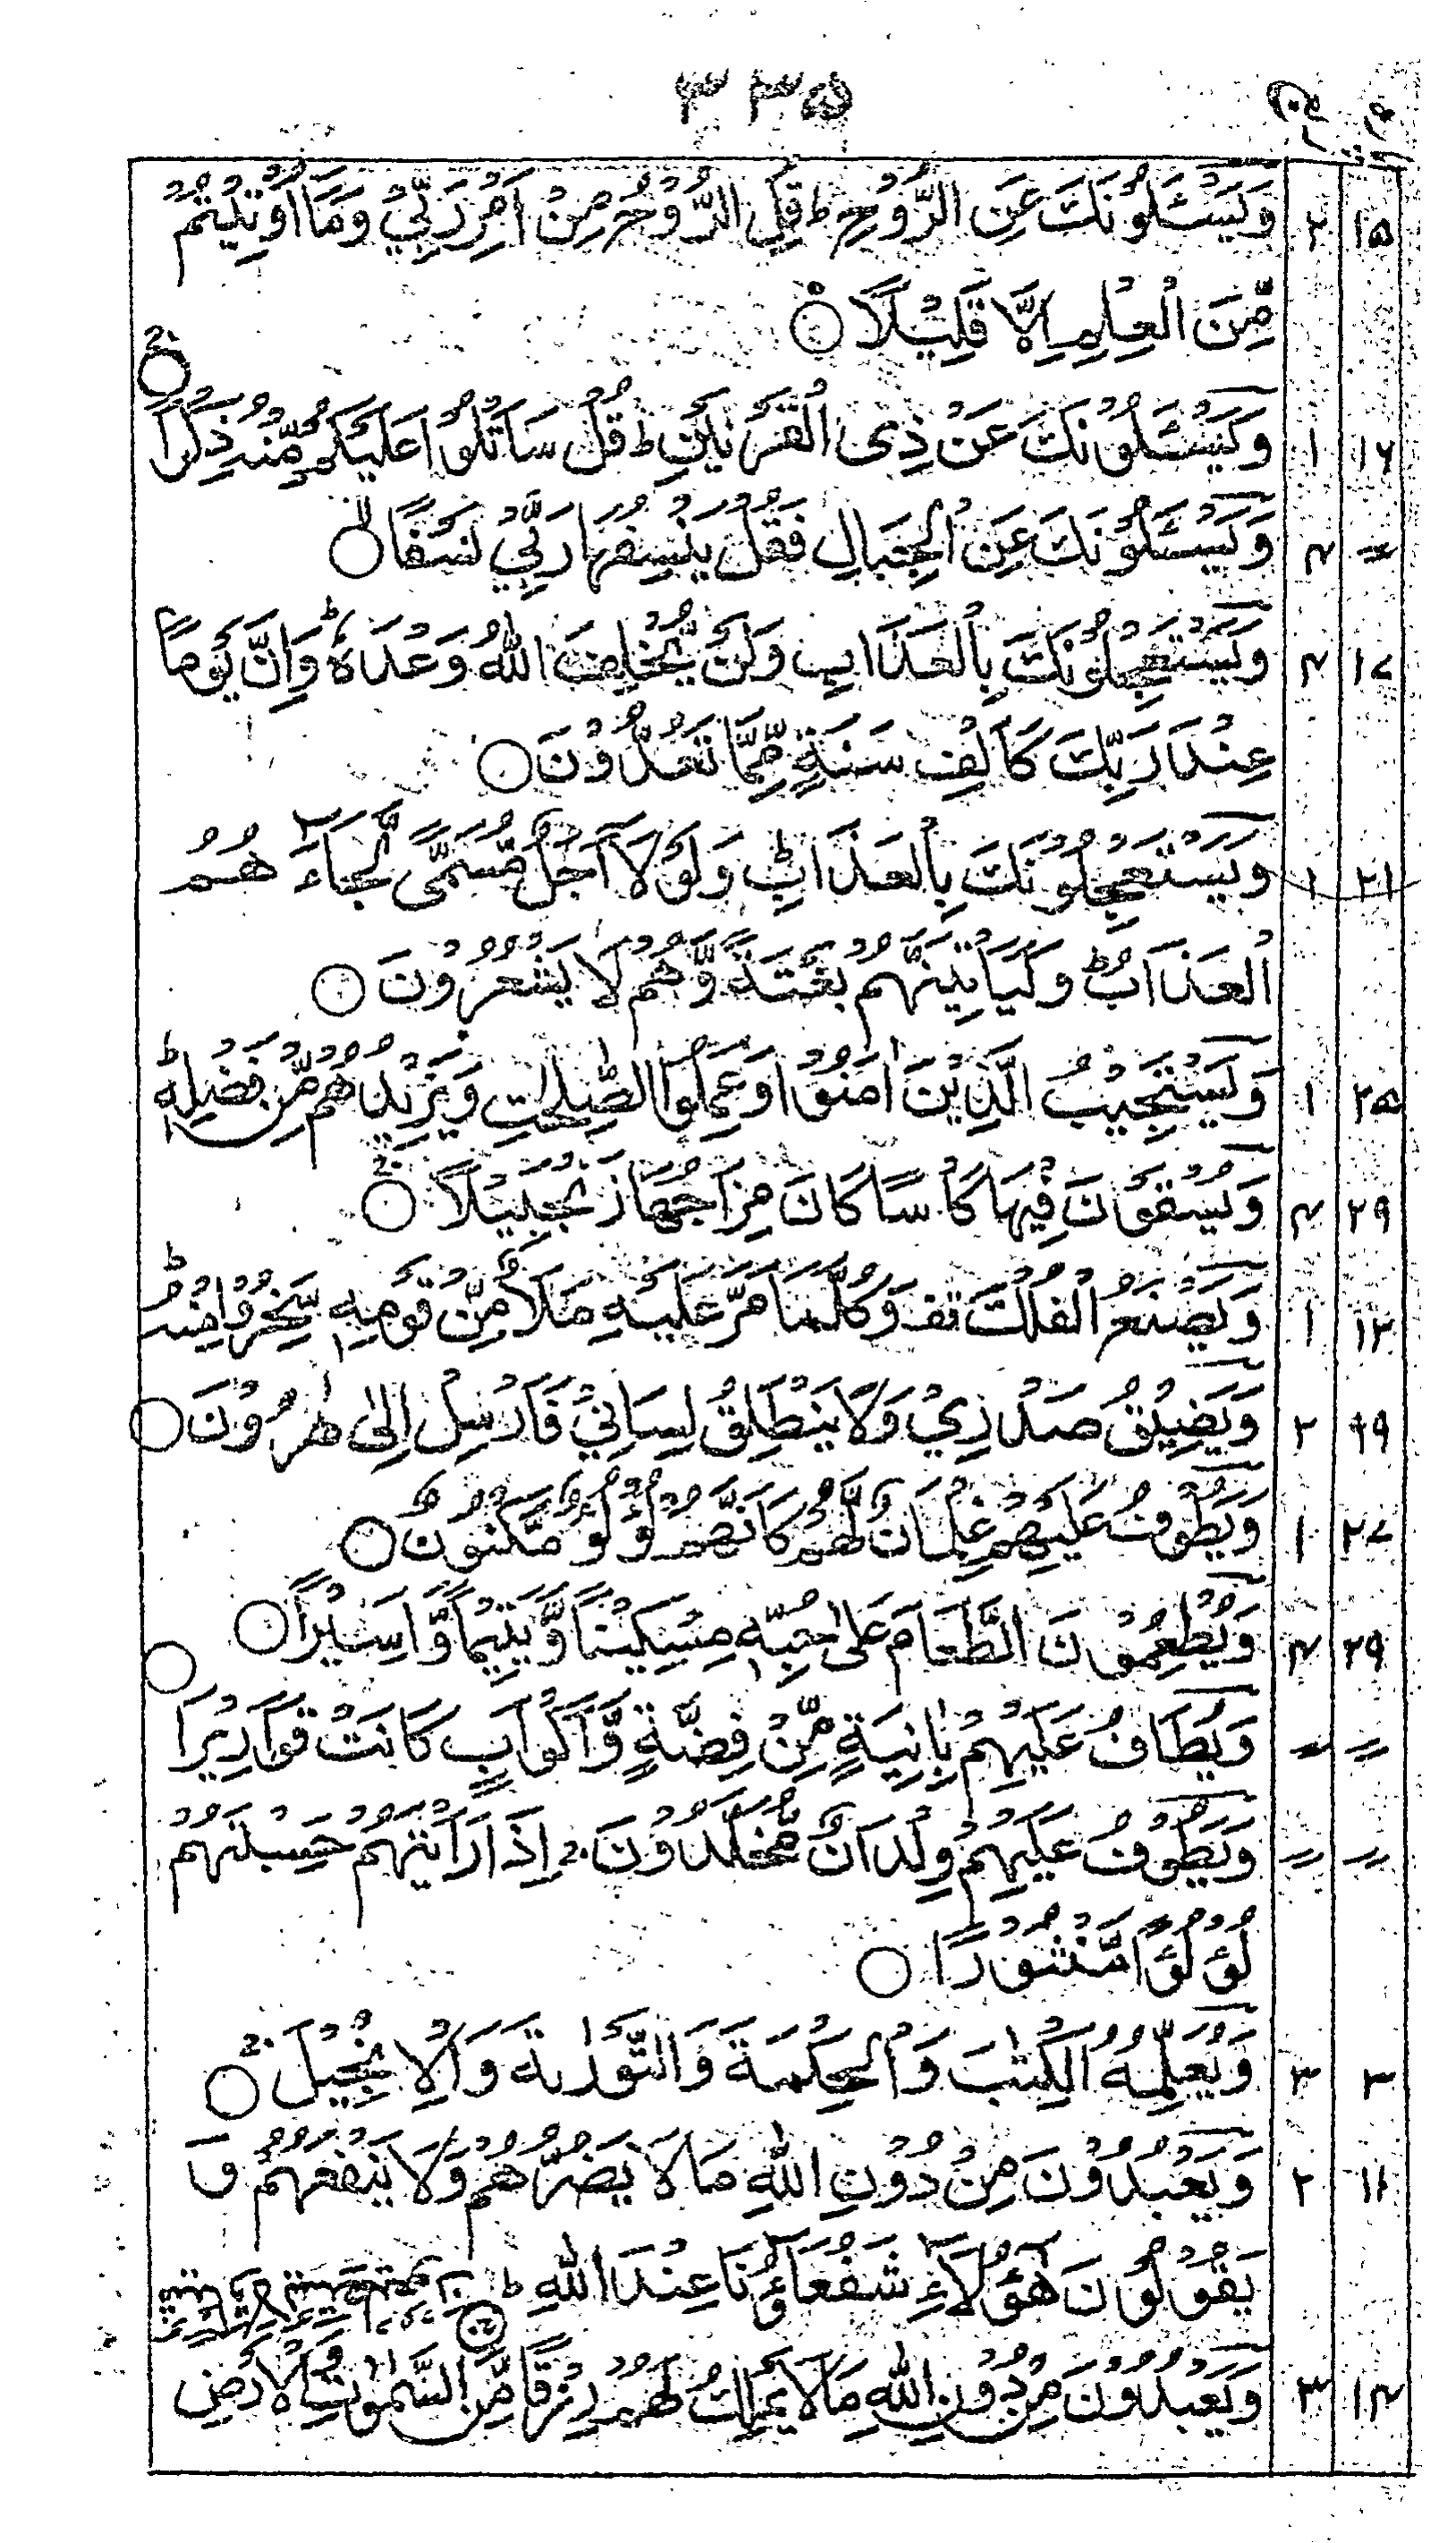 ۳۳۵
۱۵ ۲ وَيَسْئَلُوْنَكَ عَنِ الرُّوْحِ ؕ قُلِ الرُّوْحُ مِنْ اَمْرِ رَبِّيْ وَمَآ اُوْتِيْتُمْ
مِّنَ الْعِلْمِ اِلَّا قَلِيْلًا ۝
۱۶ ۱ وَيَسْئَلُوْنَكَ عَنْ ذِي الْقَرْنَيْنِ ؕ قُلْ سَاَتْلُوْا عَلَيْكُمْ مِّنْهُ ذِكْرًا ۝
〃 ۴ وَيَسْئَلُوْنَكَ عَنِ الْجِبَالِ فَقُلْ يَنْسِفُهَا رَبِّيْ نَسْفًا ۝
۱۷ ۴ وَيَسْتَعْجِلُوْنَكَ بِالْعَذَابِ وَلَنْ يُّخْلِفَ اللّٰهُ وَعْدَهٗ ؕ وَاِنَّ يَوْمًا
عِنْدَ رَبِّكَ كَاَلْفِ سَنَةٍ مِّمَّا تَعُدُّوْنَ ۝
۲۱ ۱ وَيَسْتَعْجِلُوْنَكَ بِالْعَذَابِ ؕ وَلَوْلَآ اَجَلٌ مُّسَمًّى لَّجَآءَ هُمُ
الْعَذَابُ ؕ وَلَيَاْتِيَنَّهُمْ بَغْتَةً وَّهُمْ لَا يَشْعُرُوْنَ ۝
۲۵ ۱ وَيَسْتَجِيْبُ الَّذِيْنَ اٰمَنُوْا وَعَمِلُوا الصّٰلِحٰتِ وَيَزِيْدُهُمْ مِّنْ فَضْلِهٖ ؕ
۲۹ ۴ وَيُسْقَوْنَ فِيْهَا كَاْسًا كَانَ مِزَاجُهَا زَنْجَبِيْلًا ۝
۱۲ ۱ وَيَصْنَعُ الْفُلْكَ قف وَكُلَّمَا مَرَّ عَلَيْهِ مَلَاٌ مِّنْ قَوْمِهٖ سَخِرُوْا مِنْهُ ؕ
۱۹ ۲ وَيَضِيْقُ صَدْرِيْ وَلَا يَنْطَلِقُ لِسَانِيْ فَاَرْسِلْ اِلٰى هٰرُوْنَ ۝
۲۷ ۱ وَيَطُوْفُ عَلَيْهِمْ غِلْمَانٌ لَّهُمْ كَاَنَّهُمْ لُؤْلُؤٌ مَّكْنُوْنٌ ۝
۲۹ ۴ وَيُطْعِمُوْنَ الطَّعَامَ عَلٰى حُبِّهٖ مِسْكِيْنًا وَّيَتِيْمًا وَّاَسِيْرًا ۝
〃 〃 وَيُطَافُ عَلَيْهِمْ بِاٰنِيَةٍ مِّنْ فِضَّةٍ وَّاَكْوَابٍ كَانَتْ قَوَارِيْرَا ۝
〃 〃 وَيَطُوْفُ عَلَيْهِمْ وِلْدَانٌ مُّخَلَّدُوْنَ ۚ اِذَا رَاَيْتَهُمْ حَسِبْتَهُمْ
لُؤْلُؤًا مَّنْثُوْرًا ۝
۳ ۳ وَيُعَلِّمُهُ الْكِتٰبَ وَالْحِكْمَةَ وَالتَّوْرٰىةَ وَالْاِنْجِيْلَ ۚ ۝
۱۱ ۲ وَيَعْبُدُوْنَ مِنْ دُوْنِ اللّٰهِ مَا لَا يَضُرُّهُمْ وَلَا يَنْفَعُهُمْ وَ
يَقُوْلُوْنَ هٰٓؤُلَآءِ شُفَعَآؤُنَا عِنْدَ اللّٰهِ ؕ
۱۴ ۳ وَيَعْبُدُوْنَ مِنْ دُوْنِ اللّٰهِ مَا لَا يَمْلِكُ لَهُمْ رِزْقًا مِّنَ السَّمٰوٰتِ وَالْاَرْضِ